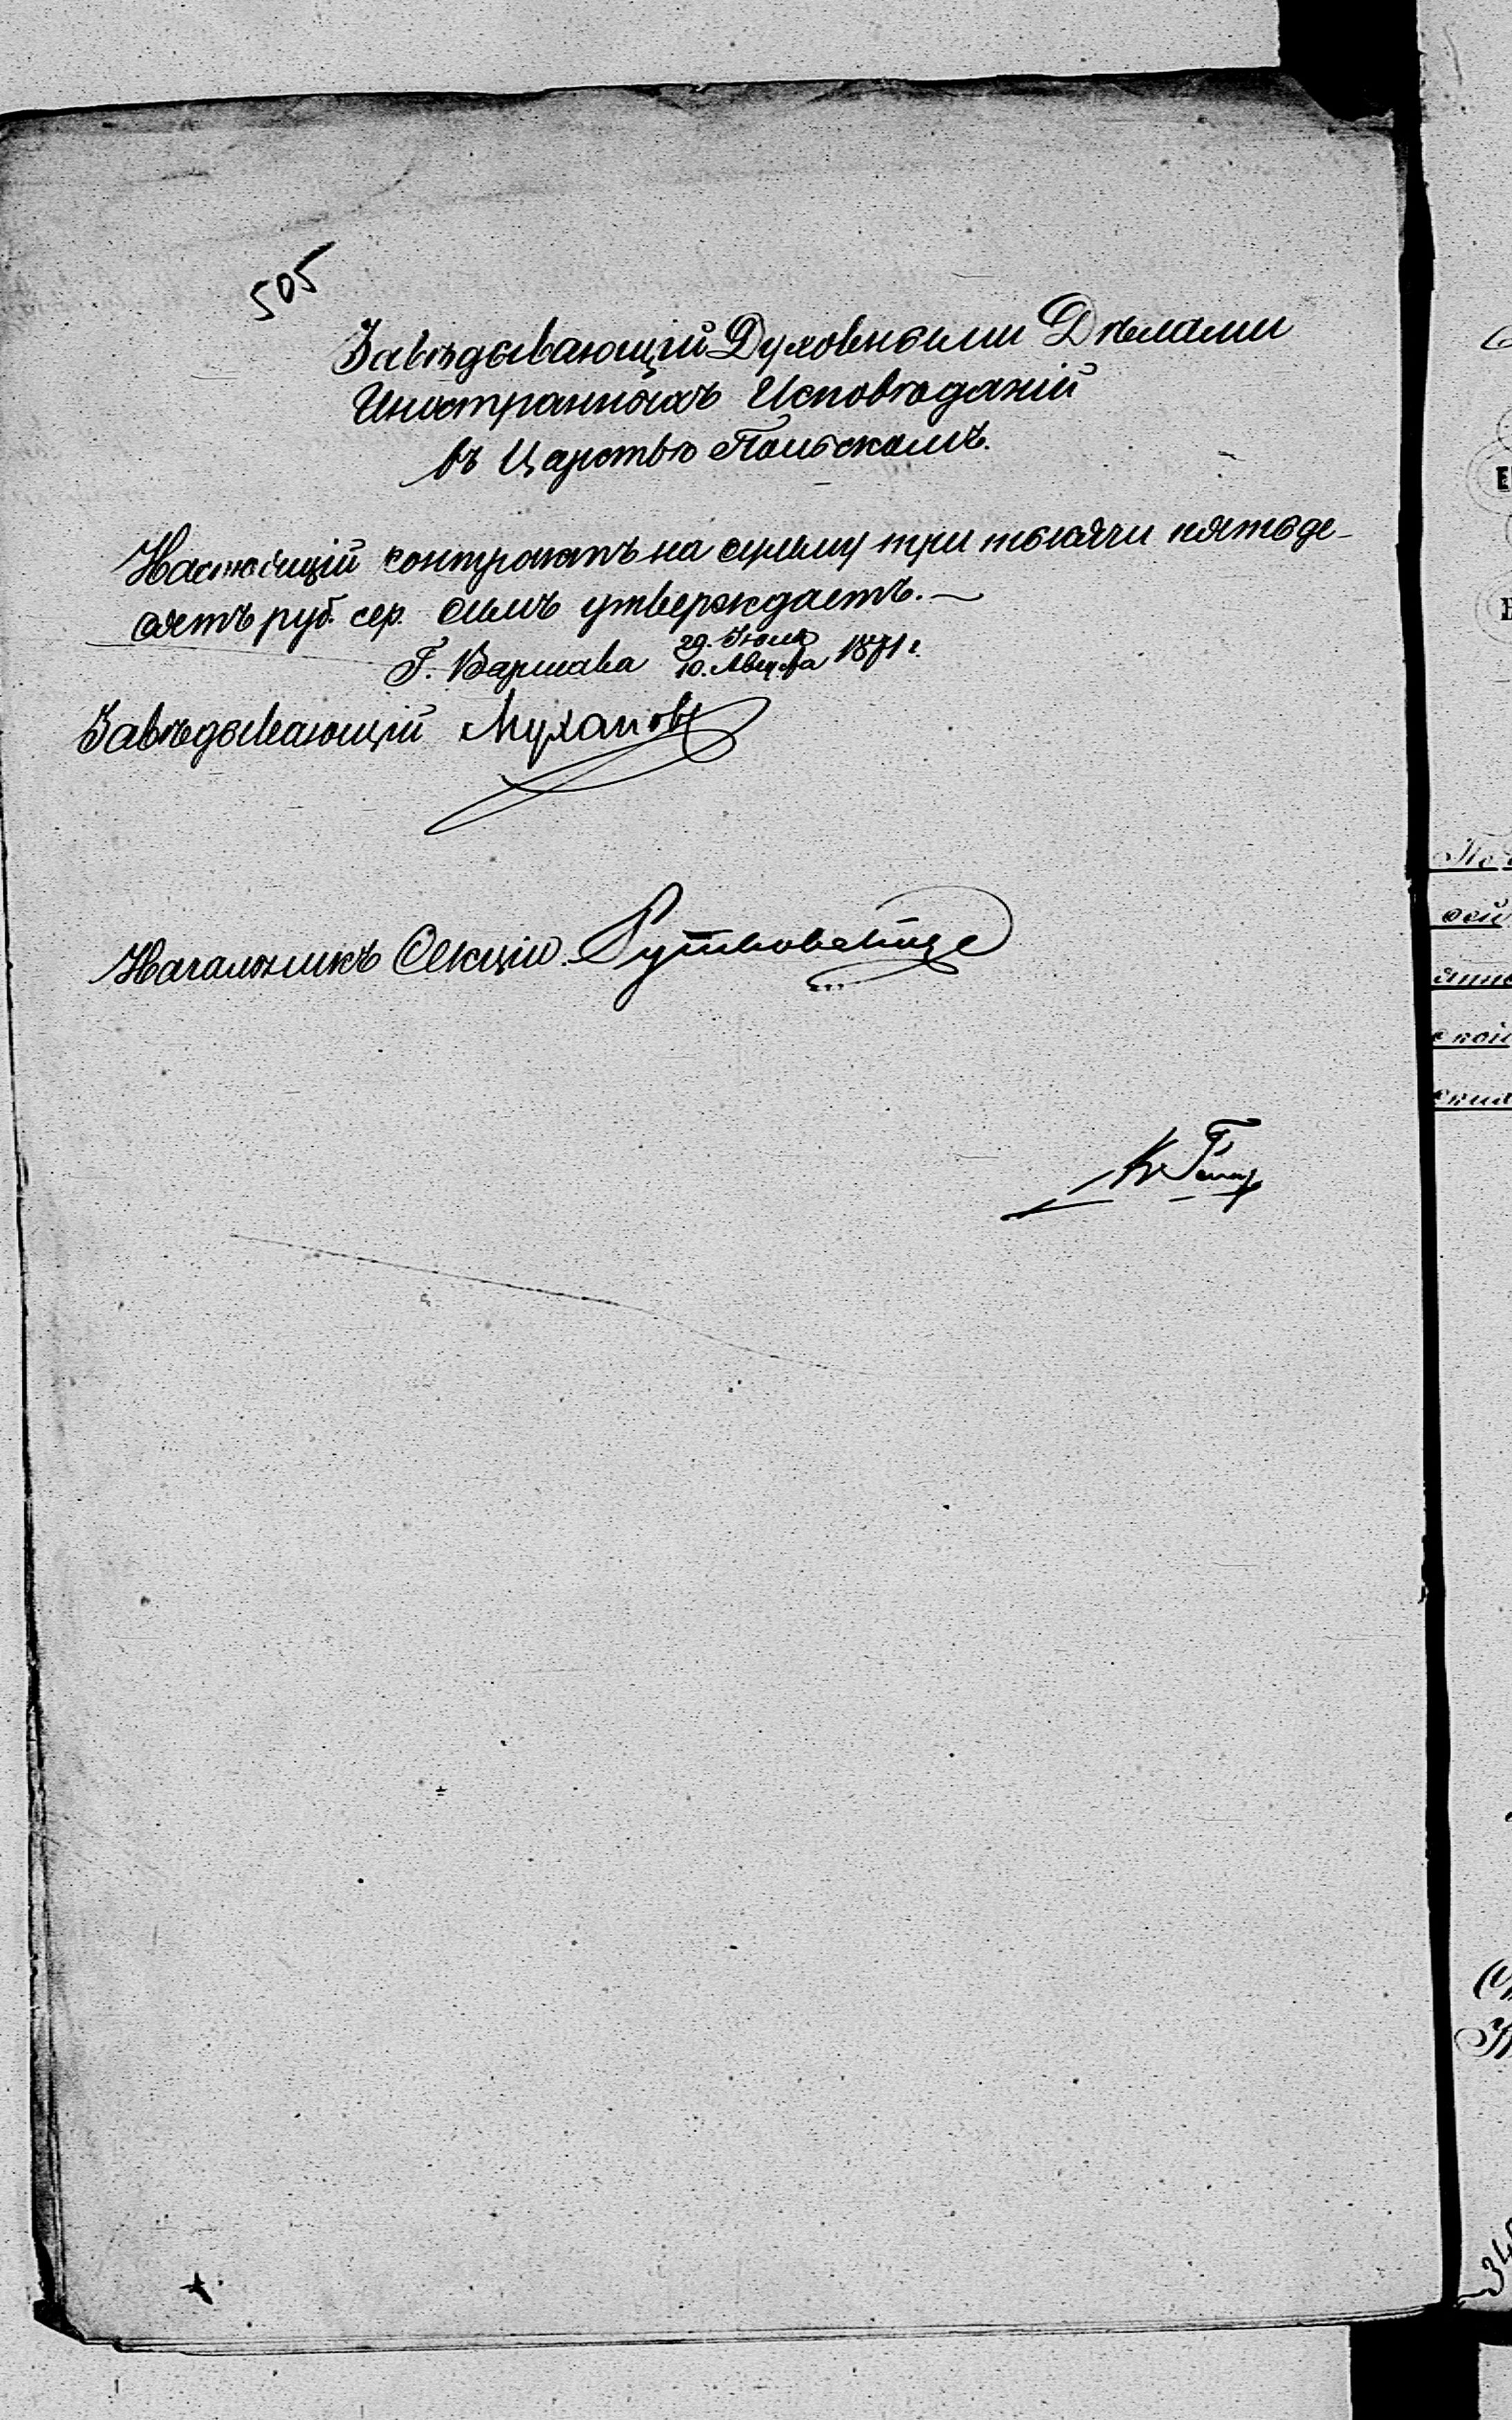 505
Завѣдывающій Духовными Дѣлами
Иностранныхъ Исповѣданій
въ Царствѣ Польскомъ.
Настоящій контрактъ на сумму три тысячи пятьде-
сятъ руб. сер. симъ утверждаетъ.
Г. Варшава 29. Іюля 1871 г.
10. Августа
Завѣдывающій Мухановъ
Начальникъ Секціи